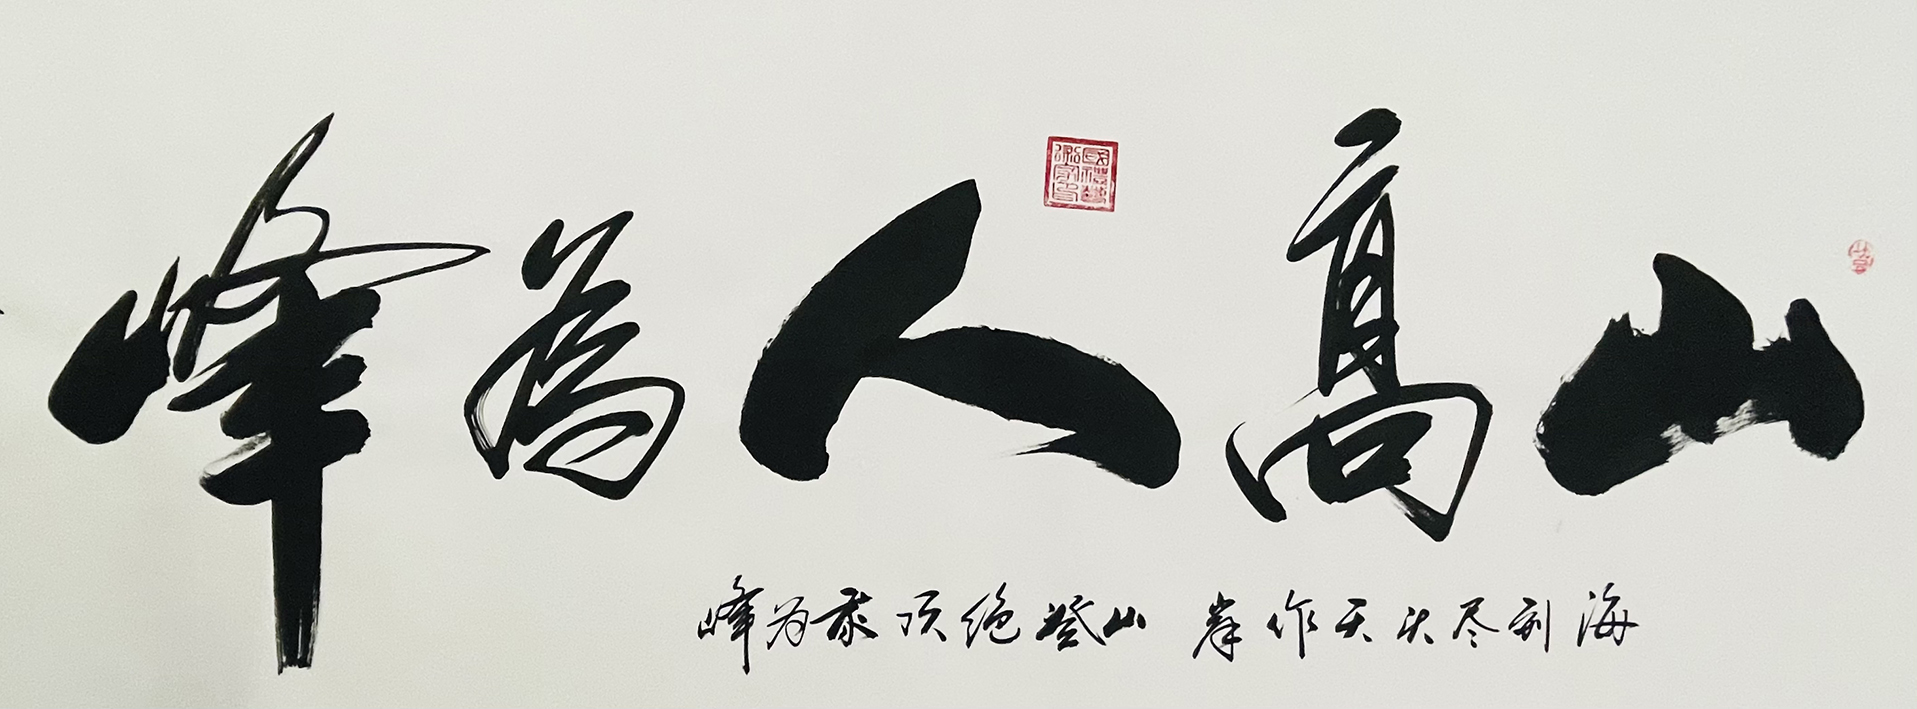 山高人为峰
海到尽头天作岸 山登绝顶我为峰